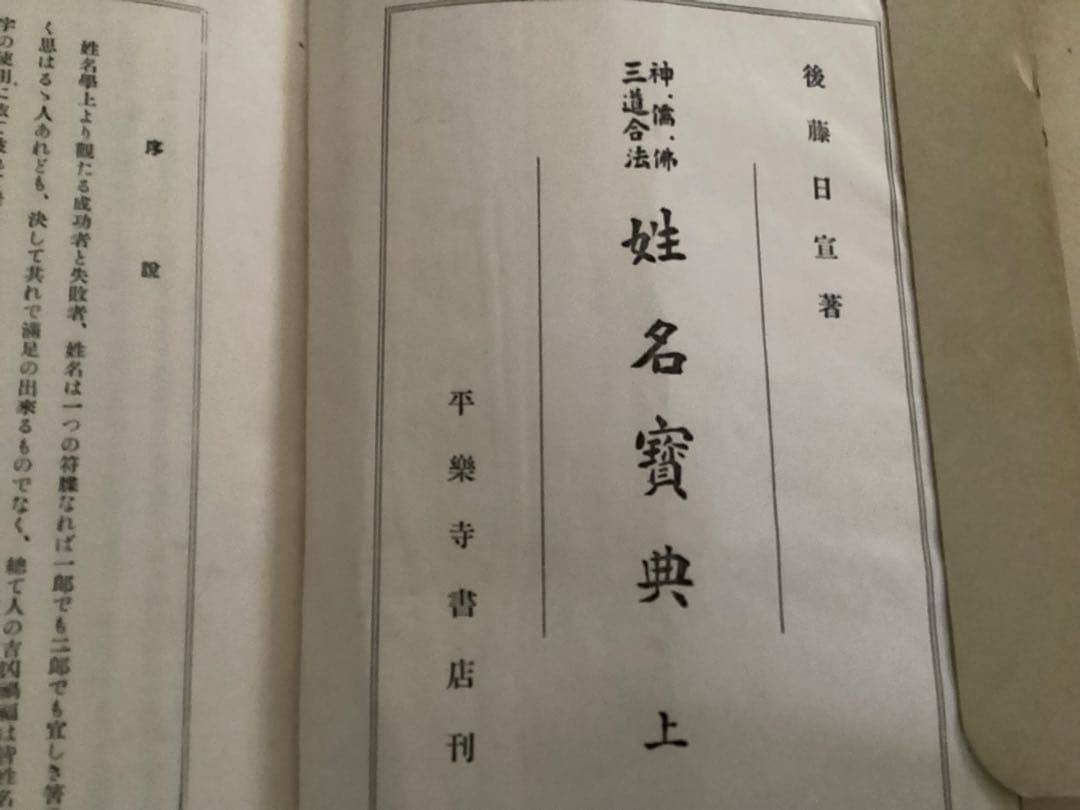 後藤日宣著
神・儒・佛
三道合法
姓名寶典 上
平樂寺書店刊
序說
姓名學上より觀たる成功者と失敗者、姓名は一つの符牒なれば一郎でも二郎でも宜しき筈
く思はるゝ人あれども、決して其れで滿足の出來るものでなく、總て人の吉凶禍福は皆姓名
字の使用に